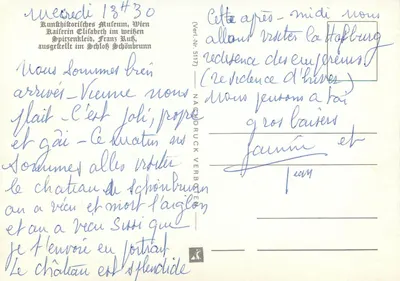 mercredi 13h30
Kunsthistorisches Museum, Wien
Kaiserin Elisabeth im weißen
Spitzenkleid, Franz Ruß,
ausgestellt im Schloß Schönbrunn
Nous sommes bien
arrivés - Vienne nous
plait - C'est joli, propre
et gai - Ce matin ns
sommes allés visiter
le chateau de Schönbrunn
où a vécu et mort l'aiglon
et où a vécu Sissi que
je t'envoie en portrait
Le château est splendide
NACHDRUCK VERB
Cette après-midi nous
allons visiter la Hofburg
résidence des empereurs
(résidence d'hiver)
Nous pensons à toi
gros baisers
et